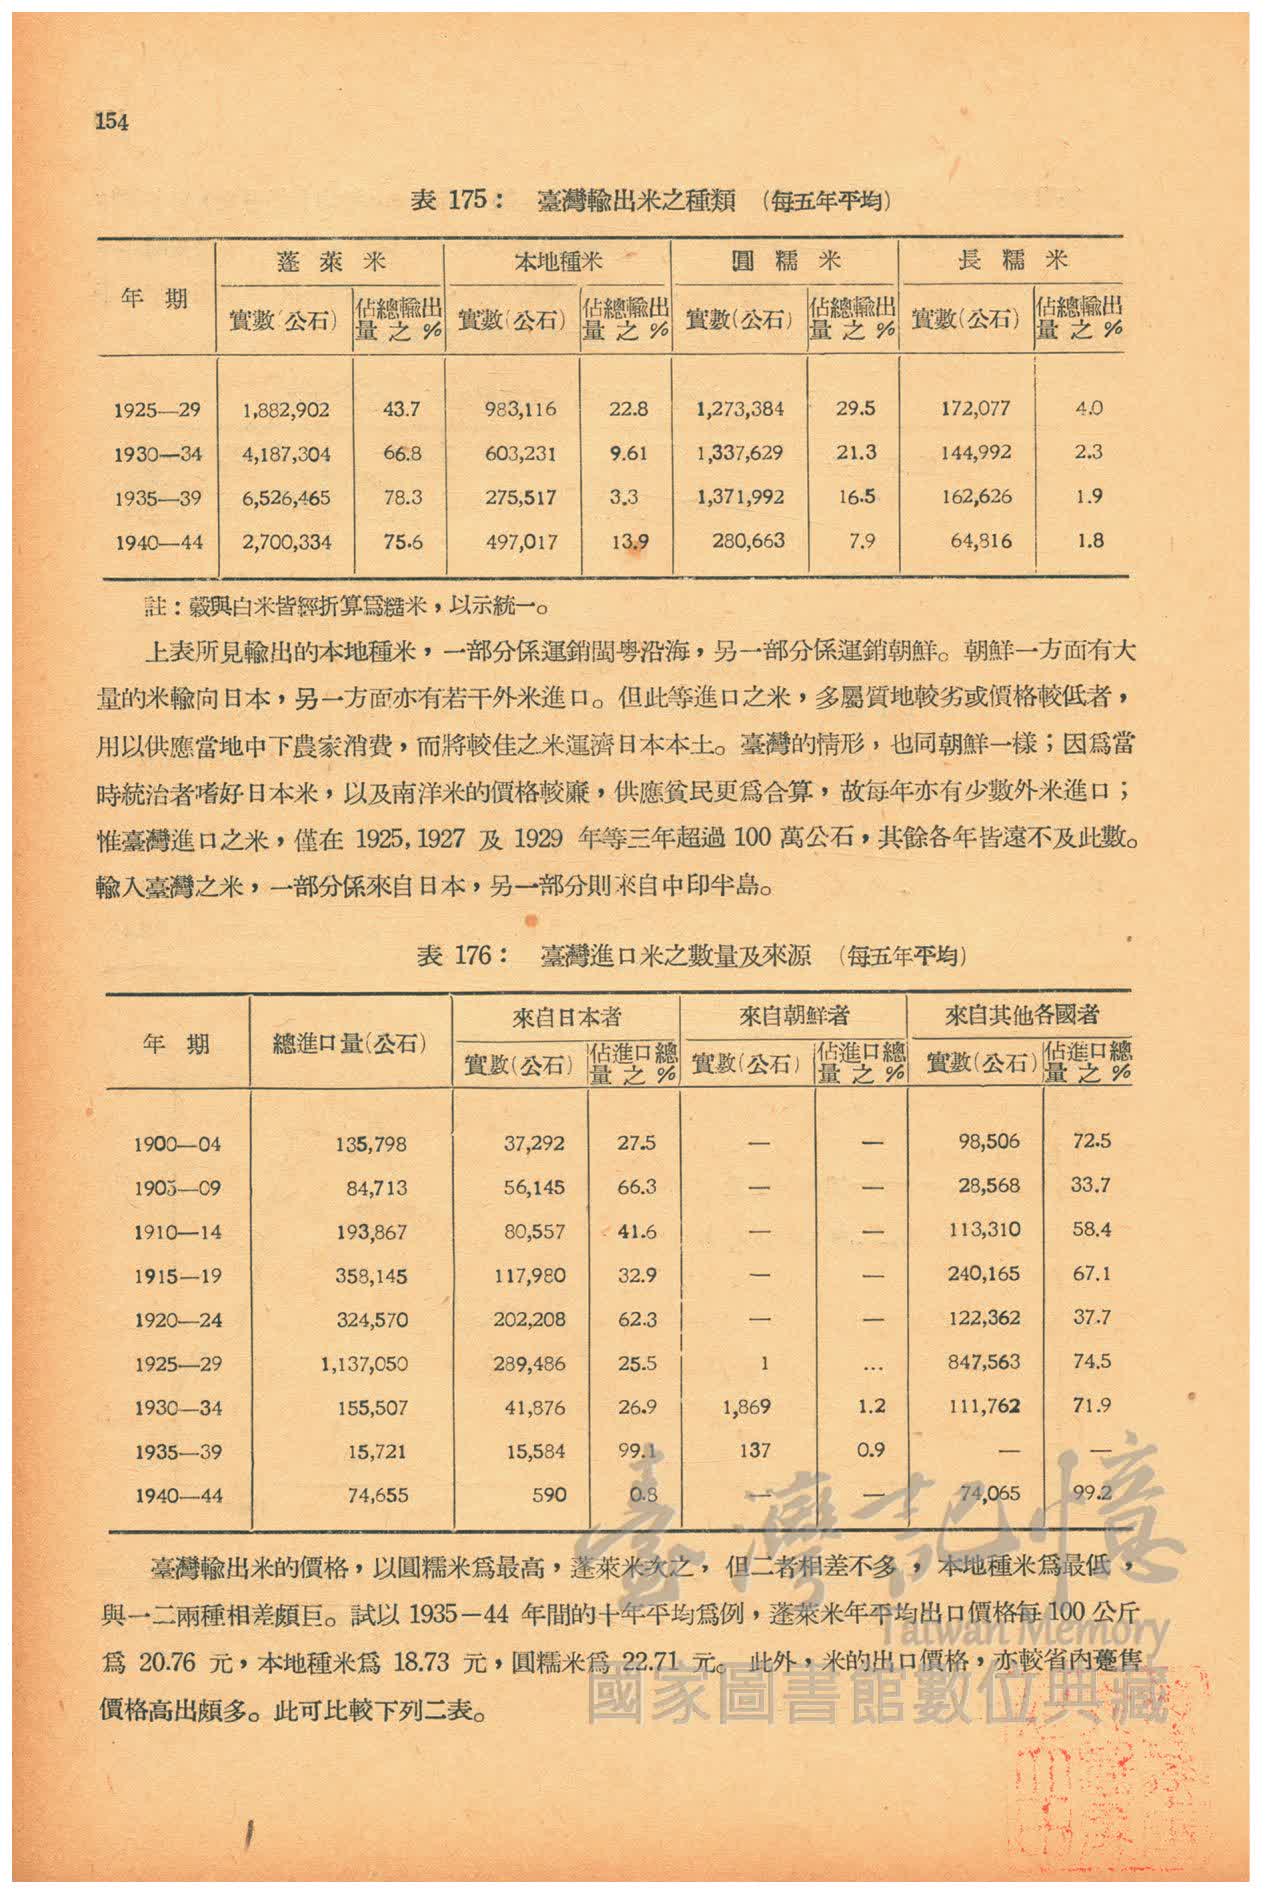 154
表 175： 臺灣輸出米之種類 （每五年平均）
年 期 蓬 萊 米 本地種米 圓 糯 米 長 糯 米
實數(公石) 佔總輸出量之% 實數(公石) 佔總輸出量之% 實數(公石) 佔總輸出量之% 實數(公石) 佔總輸出量之%
1925—29 1,882,902 43.7 983,116 22.8 1,273,384 29.5 172,077 4.0
1930—34 4,187,304 66.8 603,231 9.61 1,337,629 21.3 144,992 2.3
1935—39 6,526,465 78.3 275,517 3.3 1,371,992 16.5 162,626 1.9
1940—44 2,700,334 75.6 497,017 13.9 280,663 7.9 64,816 1.8
註：穀與白米皆經折算爲糙米，以示統一。
上表所見輸出的本地種米，一部分係運銷閩粵沿海，另一部分係運銷朝鮮。朝鮮一方面有大
量的米輸向日本，另一方面亦有若干外米進口。但此等進口之米，多屬質地較劣或價格較低者，
用以供應當地中下農家消費，而將較佳之米運濟日本本土。臺灣的情形，也同朝鮮一樣；因爲當
時統治者嗜好日本米，以及南洋米的價格較廉，供應貧民更爲合算，故每年亦有少數外米進口；
惟臺灣進口之米，僅在 1925, 1927 及 1929 年等三年超過 100 萬公石，其餘各年皆遠不及此數。
輸入臺灣之米，一部分係來自日本，另一部分則來自中印半島。
表 176： 臺灣進口米之數量及來源 （每五年平均）
年 期 總進口量(公石) 來自日本者 來自朝鮮者 來自其他各國者
實數(公石) 佔進口總量之% 實數(公石) 佔進口總量之% 實數(公石) 佔進口總量之%
1900—04 135,798 37,292 27.5 — — 98,506 72.5
1905—09 84,713 56,145 66.3 — — 28,568 33.7
1910—14 193,867 80,557 41.6 — — 113,310 58.4
1915—19 358,145 117,980 32.9 — — 240,165 67.1
1920—24 324,570 202,208 62.3 — — 122,362 37.7
1925—29 1,137,050 289,486 25.5 1 … 847,563 74.5
1930—34 155,507 41,876 26.9 1,869 1.2 111,762 71.9
1935—39 15,721 15,584 99.1 137 0.9 — —
1940—44 74,655 590 0.8 — — 74,065 99.2
臺灣輸出米的價格，以圓糯米爲最高，蓬萊米次之，但二者相差不多，本地種米爲最低，
與一二兩種相差頗巨。試以 1935—44 年間的十年平均爲例，蓬萊米年平均出口價格每 100 公斤
爲 20.76 元，本地種米爲 18.73 元，圓糯米爲 22.71 元。此外，米的出口價格，亦較省內躉售
價格高出頗多。此可比較下列二表。
臺灣記憶
Taiwan Memory
國家圖書館數位典藏